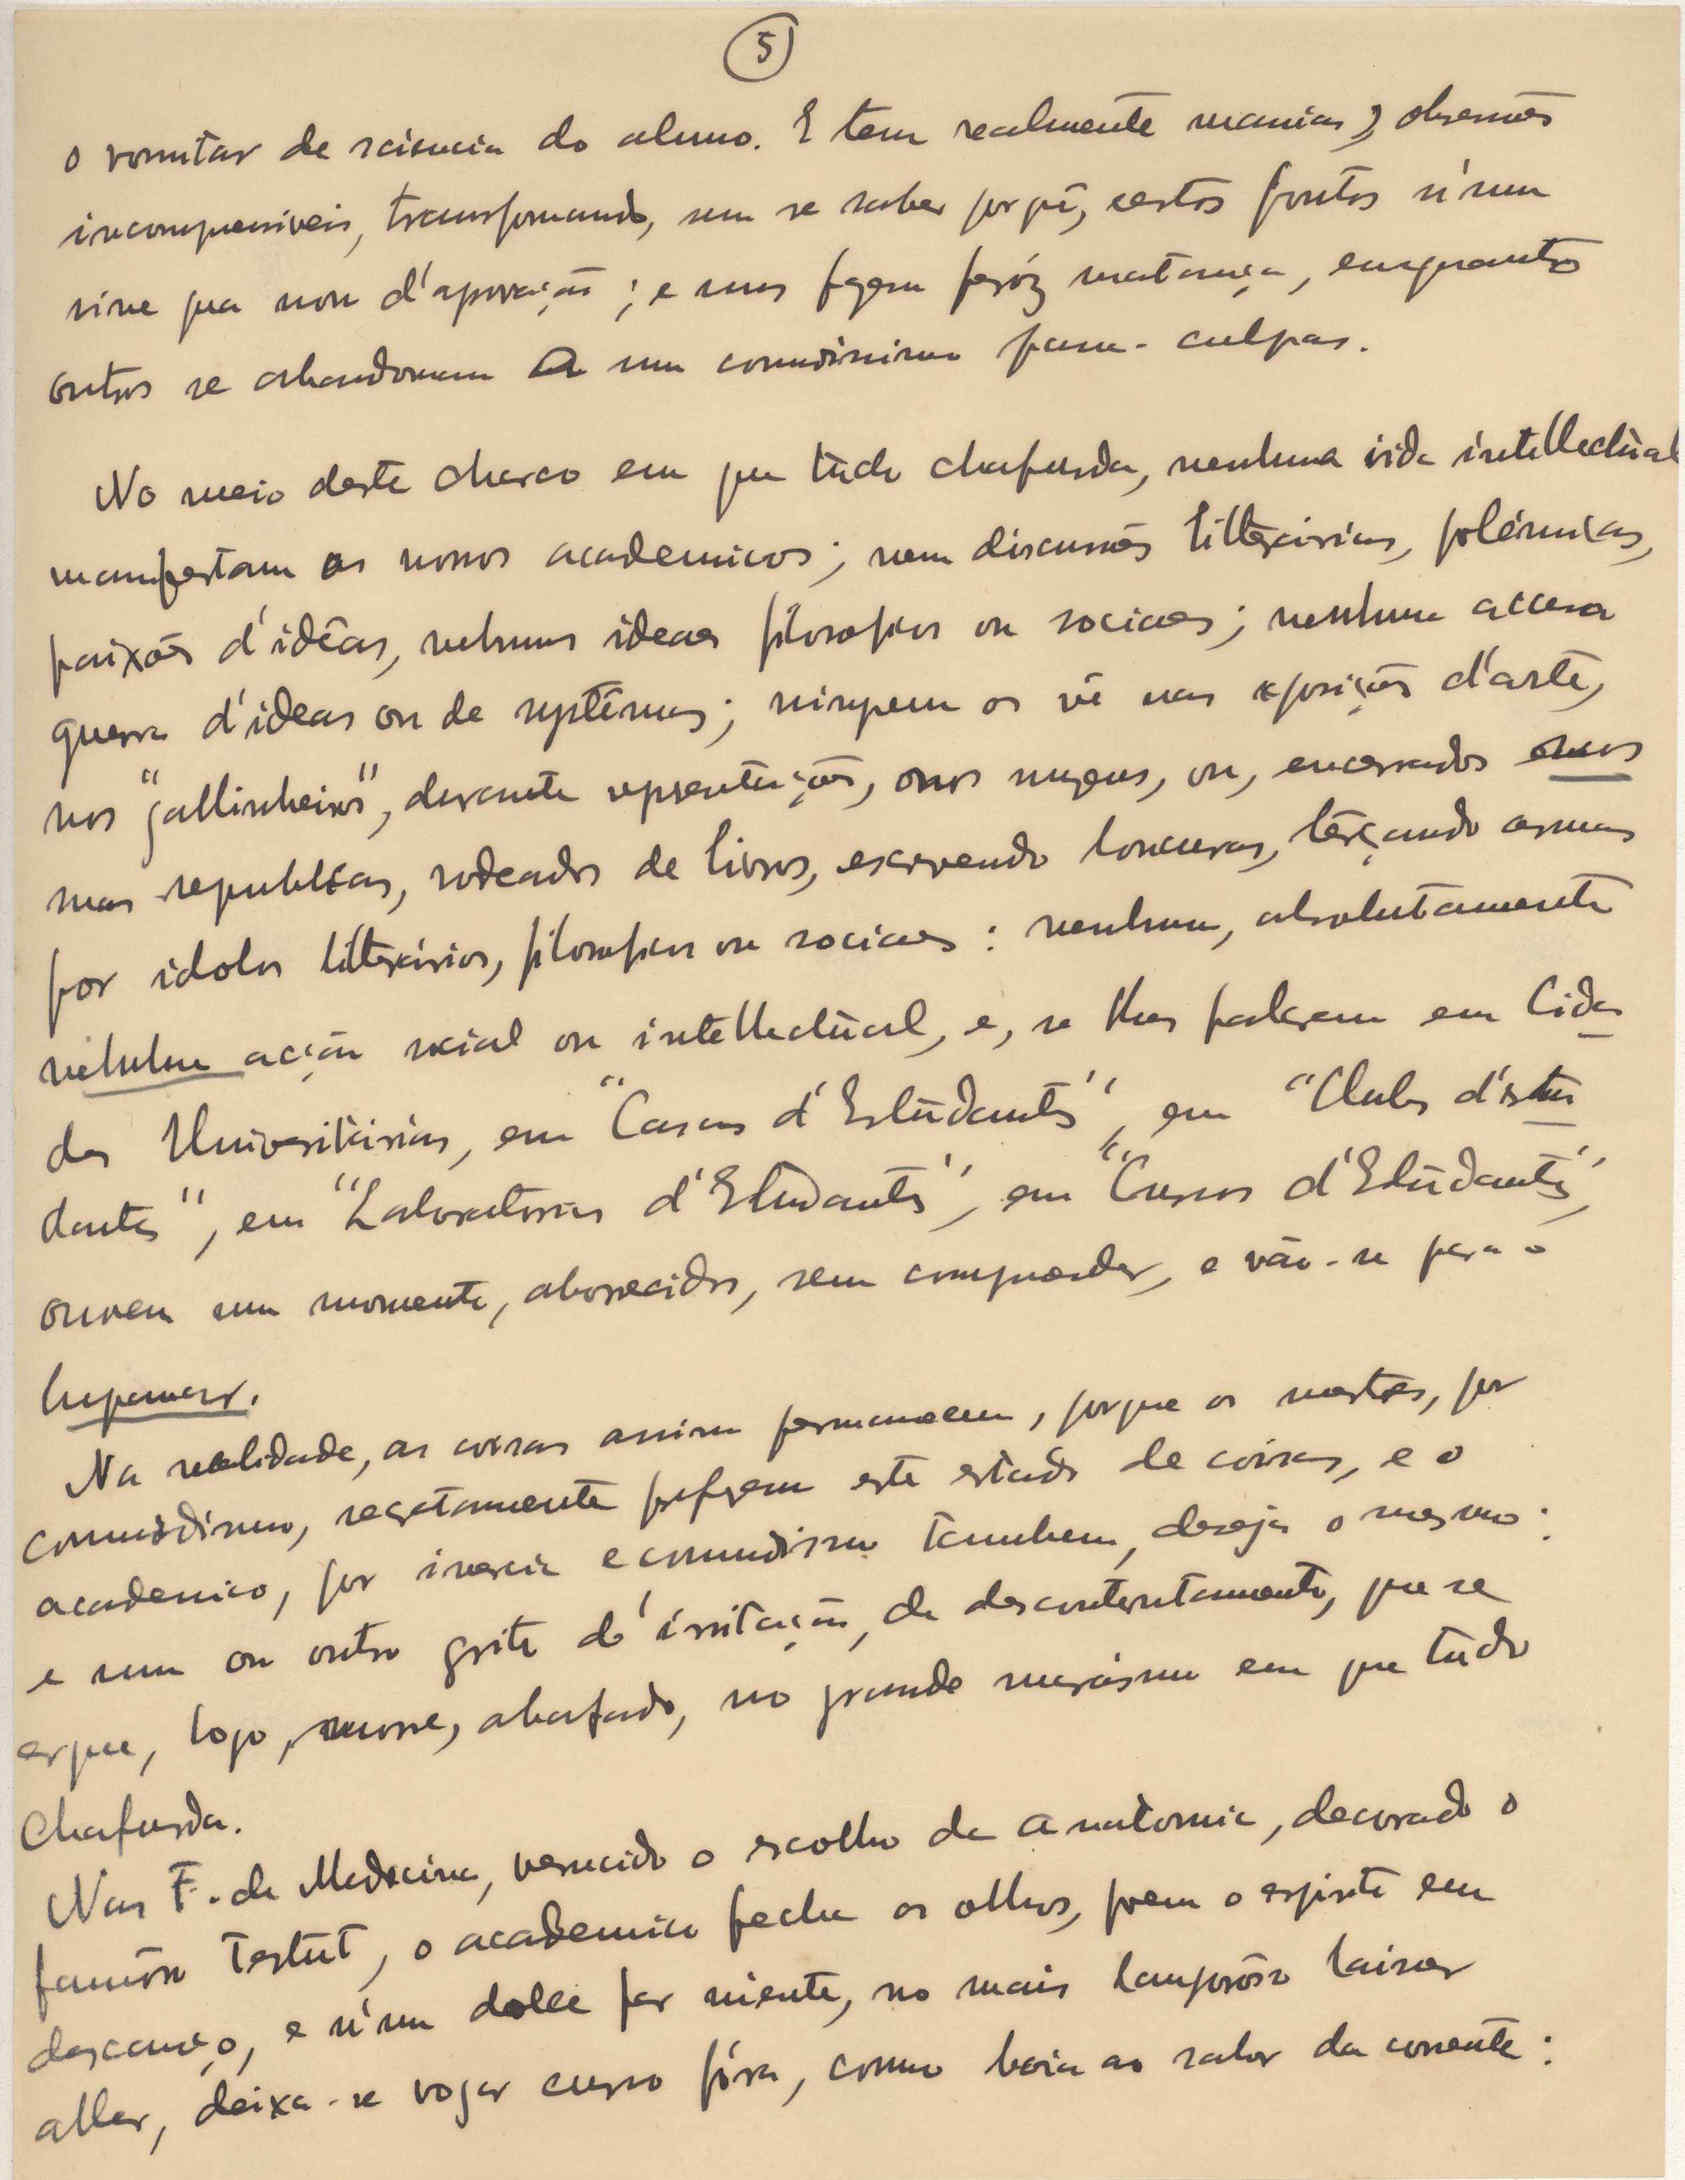 5
o vomitar de sciencia do alumno. E tem realmente manias, obsessões
incomprensiveis, transformando, sem se saber porquê, certos pontos n'um
sine qua non d'aprovação; e uns fazem feróz matança, emquanto
outros se abandonam a um comodismo pana-culpas.
No meio deste charco em que tudo chafurda, nenhuma vida intellectual
manifestam os nossos academicos; nem discussões litterárias, polémicas,
paixões d'idêas, nenhuns ideaes filosoficos ou sociaes; nenhuma accesa
guerra d'ideas ou de systêmas; ninguem os vê nas exposições d'arte,
nos "gallinheiros", durante representações, ou nos museus, ou, encerrados
nas republicas, rodeados de livros, escrevendo loucuras, terçando armas
por idolos litterários, filosoficos ou sociaes: nenhuma, absolutamente
nenhuma acção social ou intellectual, e, se lhes falarem em Cida
des Universitárias, em "Casas d'Estudantes", em "Clubs d'estu
dantes", em "Laboratorios d'Estudantes", em "Cursos d'Estudantes",
ouvem um momento, aborrecidos, sem comprender, e vão-se para o
lupanar.
Na realidade, as coisas assim permanecem, porque os mestres, por
comodismo, secretamente preferem este estado de coisas, e o
academico, por inercia e comodismo tambem, deseja o mesmo:
e um ou outro grito de irritação, de descontentamento, que se
ergue, logo, morre, abafado, no grande marásmo em que tudo
chafurda.
Nas F. de Medicina, vencido o escolho da Anatomia, decorado o
famôso Testut, o academico fecha os olhos, poem o espirito em
descanço, e n'um dolce far niente, no mais langorôso laisser
aller, deixa-se vogar curso fóra, como boia ao sabor da corrente: